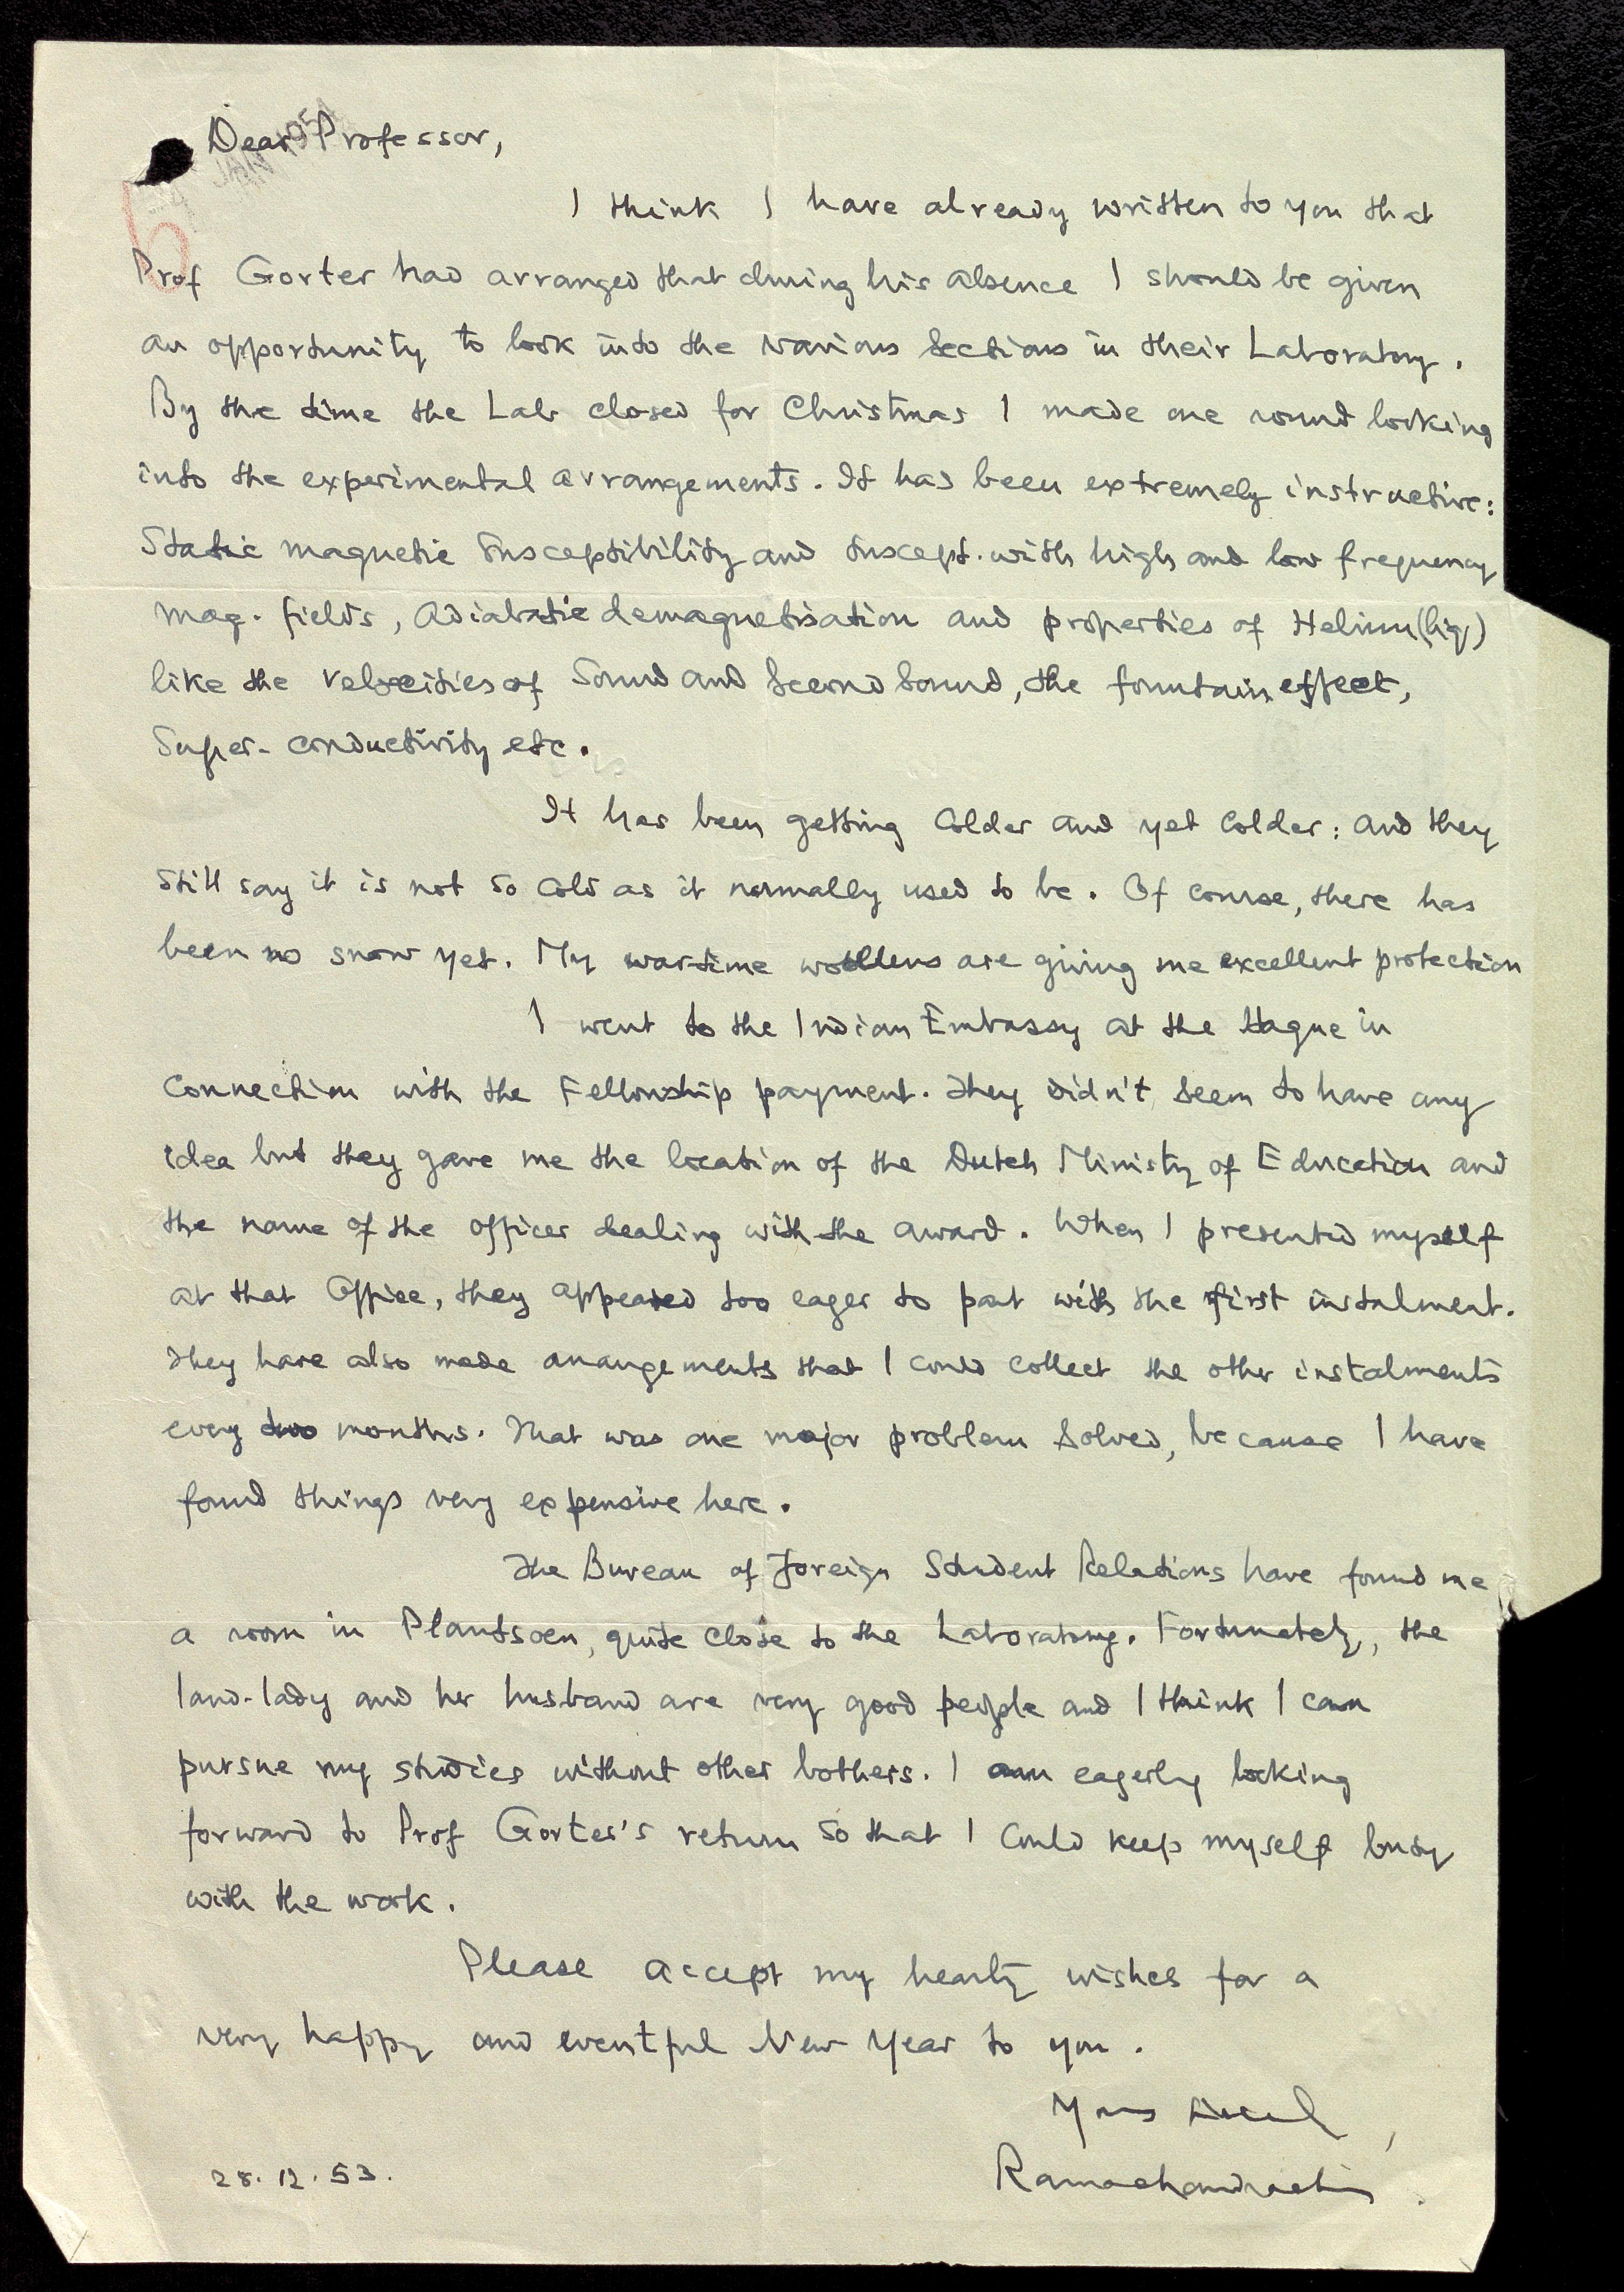 Dear Professor,
JAN 1954
I think I have already written to you that
Prof Gorter had arranged that during his absence I should be given
an opportunity to look into the various sections in their Laboratory.
By the time the Lab closed for Christmas I made one round looking
into the experimental arrangements. It has been extremely instructive:
Static magnetic susceptibility and suscept. with high and low frequency
mag. fields, Adiabatic demagnetisation and properties of Helium (liq)
like the velocities of Sound and Second Sound, the fountain effect,
Super-conductivity etc.
It has been getting colder and yet colder: and they
still say it is not so cold as it normally used to be. Of course, there has
been no snow yet. My wartime woollens are giving me excellent protection
I went to the Indian Embassy at the Hague in
connection with the Fellowship payment. They didn't seem to have any
idea but they gave me the location of the Dutch Ministry of Education and
the name of the officer dealing with the award. When I presented myself
at that Office, they appeared too eager to part with the first instalment.
They have also made arrangements that I could collect the other instalments
every two months. That was one major problem solved, because I have
found things very expensive here.
The Bureau of Foreign Student Relations have found me
a room in Plantsoen, quite close to the Laboratory. Fortunately, the
land-lady and her husband are very good people and I think I can
pursue my studies without other bothers. I am eagerly looking
forward to Prof Gorter's return so that I could keep myself busy
with the work.
Please accept my hearty wishes for a
very happy and eventful New Year to you.
Yours
28.12.53.